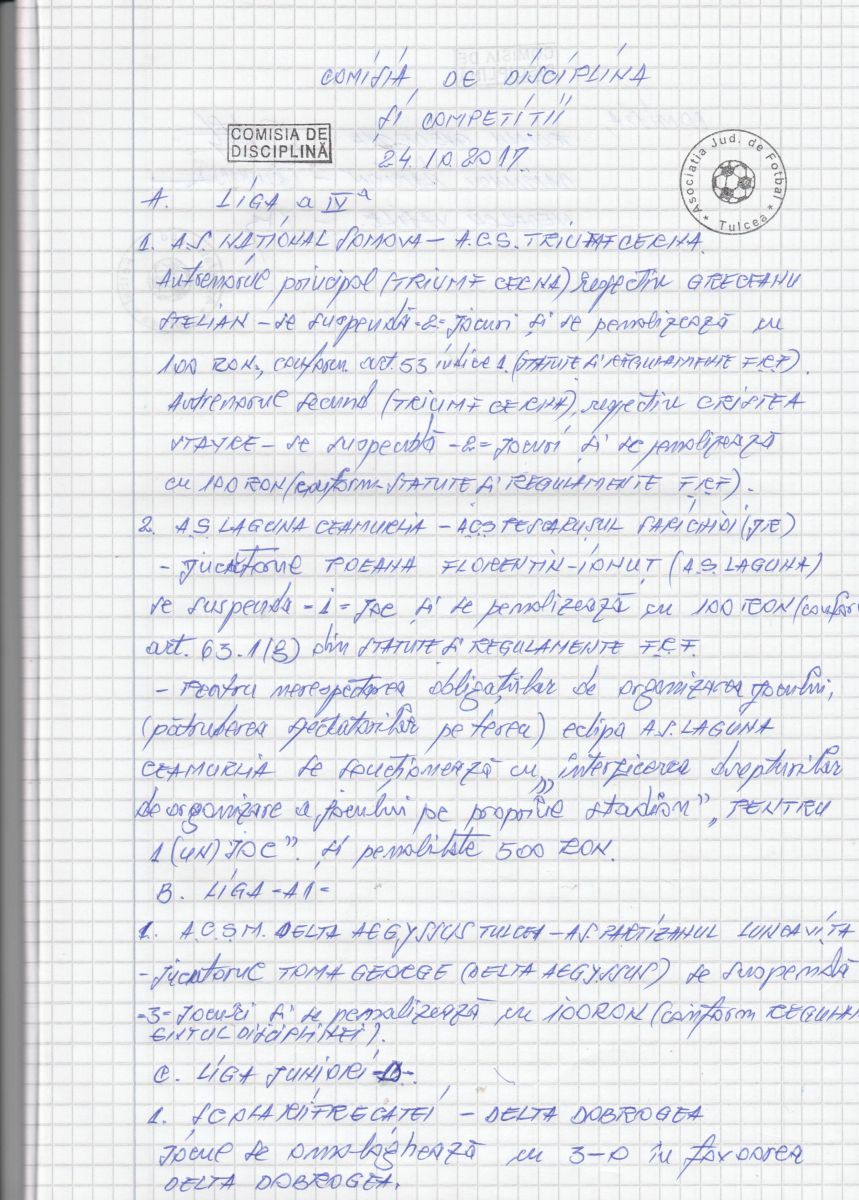 COMISIA DE DISCIPLINA
SI COMPETITII
COMISIA DE
DISCIPLINĂ
24.10.2017
Asociatia Jud. de Fotbal
* Tulcea *
A. LIGA a IV a
1. A.S. NATIONAL SOMOVA – A.C.S. TRIUMF CERNA.
Antrenorul principal (TRIUMF CERNA) respectiv GRECEANU
STELIAN – se suspendă =2= jocuri și se penalizează cu
100 RON, conform art. 53 indice 1. (STATUTE SI REGULAMENTE F.R.F).
Antrenorul secund (TRIUMF CERNA), respectiv CRISTEA
– se suspendă –2= jocuri și se penalizează
cu 100 RON (conform STATUTE SI REGULAMENTE F.R.F).
2. A.S. LAGUNA CEAMURLIA – ACS PESCARUSUL SARICHIOI (JR)
– jucătorul POEANA FLORENTIN–IONUT (A.S. LAGUNA)
se suspenda –1= joc și se penalizează cu 100 RON (confor
art. 63.1(B) din STATUTE SI REGULAMENTE F.R.F.
– Pentru nerespectarea obligațiilor de organizarea jocului,
(pătruderea spectatorilor pe teren) echipa A.S. LAGUNA
CEAMURLIA se sancționează cu „interzicerea drepturilor
de organizare a jocului pe propriul stadion”, PENTRU
1 (UN) JOC”. și penalitate 500 RON.
B. LIGA =A1=
1. A.C.S.M. DELTA AEGYSSUS TULCEA – AS. PARTIZANUL LUNCAVITA
– jucatorul TOMA GEORGE (DELTA AEGYSSUS) se suspendă
=3= jocuri si se penalizează cu 100 RON (conform REGULAM
ENTUL DISCIPLINEI).
C. LIGA JUNIORI –D–
1. SCOLARII FRECATEI – DELTA DOBROGEA
Jocul se omologhează cu 3–0 în favoarea
DELTA DOBROGEA.